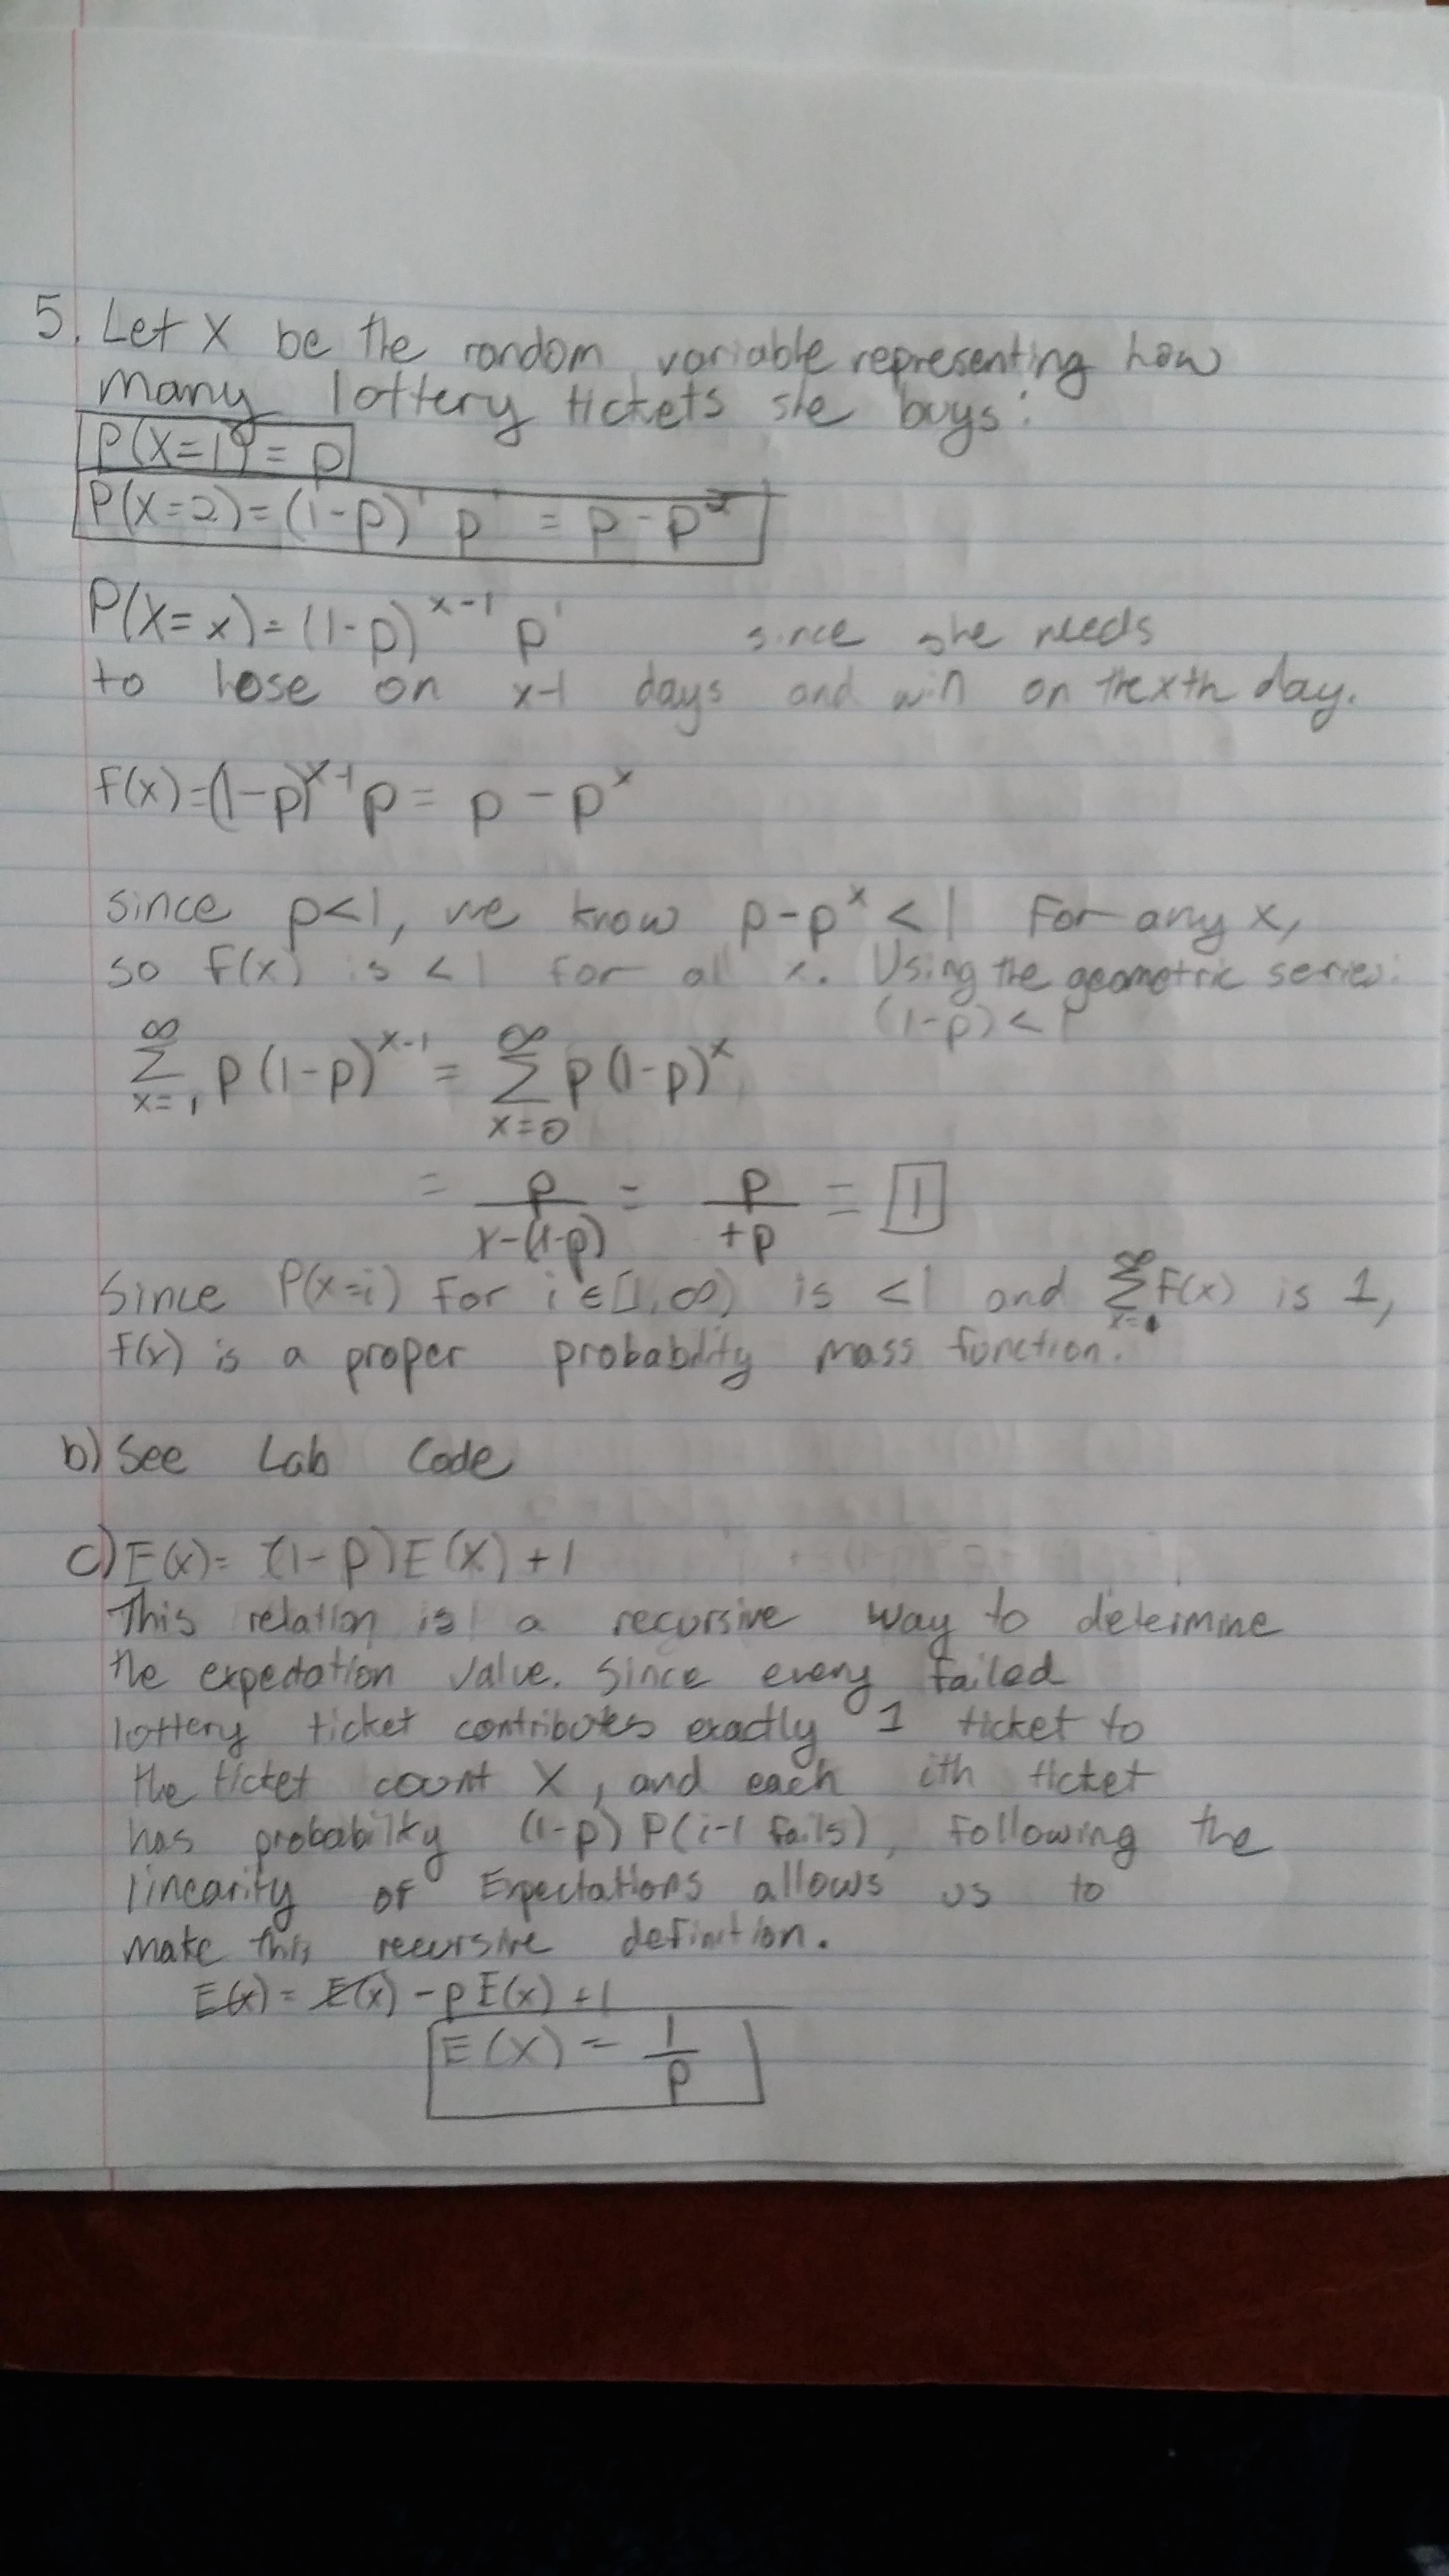 5. Let X be the random variable representing how
many lottery tickets she buys:
P(X=1) = p
P(X=2) = (1-p)¹ p¹ = p - p²
P(X=x) = (1-p)^(x-1) p¹ since she needs
to lose on x-1 days and win on the xth day.
f(x) = (1-p)^(x-1) p = p - p^x
since p<1, we know p-p^x < 1 for any x,
so f(x) is <1 for all x. Using the geometric series:
(1-p) < 1
∞ Σ x=1 p(1-p)^(x-1) = ∞ Σ x=0 p(1-p)^x
= p/(1-(1-p)) = p/+p = 1
Since P(x=i) for i ∈ [1, ∞) is <1 and ∞ Σ x=1 f(x) is 1,
f(x) is a proper probability mass function.
b) See Lab Code
c) E(x) = (1-p)E(X) + 1
This relation is a recursive way to determine
the expectation value. Since every failed
lottery ticket contributes exactly 1 ticket to
the ticket count X, and each ith ticket
has probability (1-p) P(i-1 fails), following the
linearity of Expectations allows us to
make this recursive definition.
E(x) = E(x) - p E(x) + 1
E(X) = 1/p